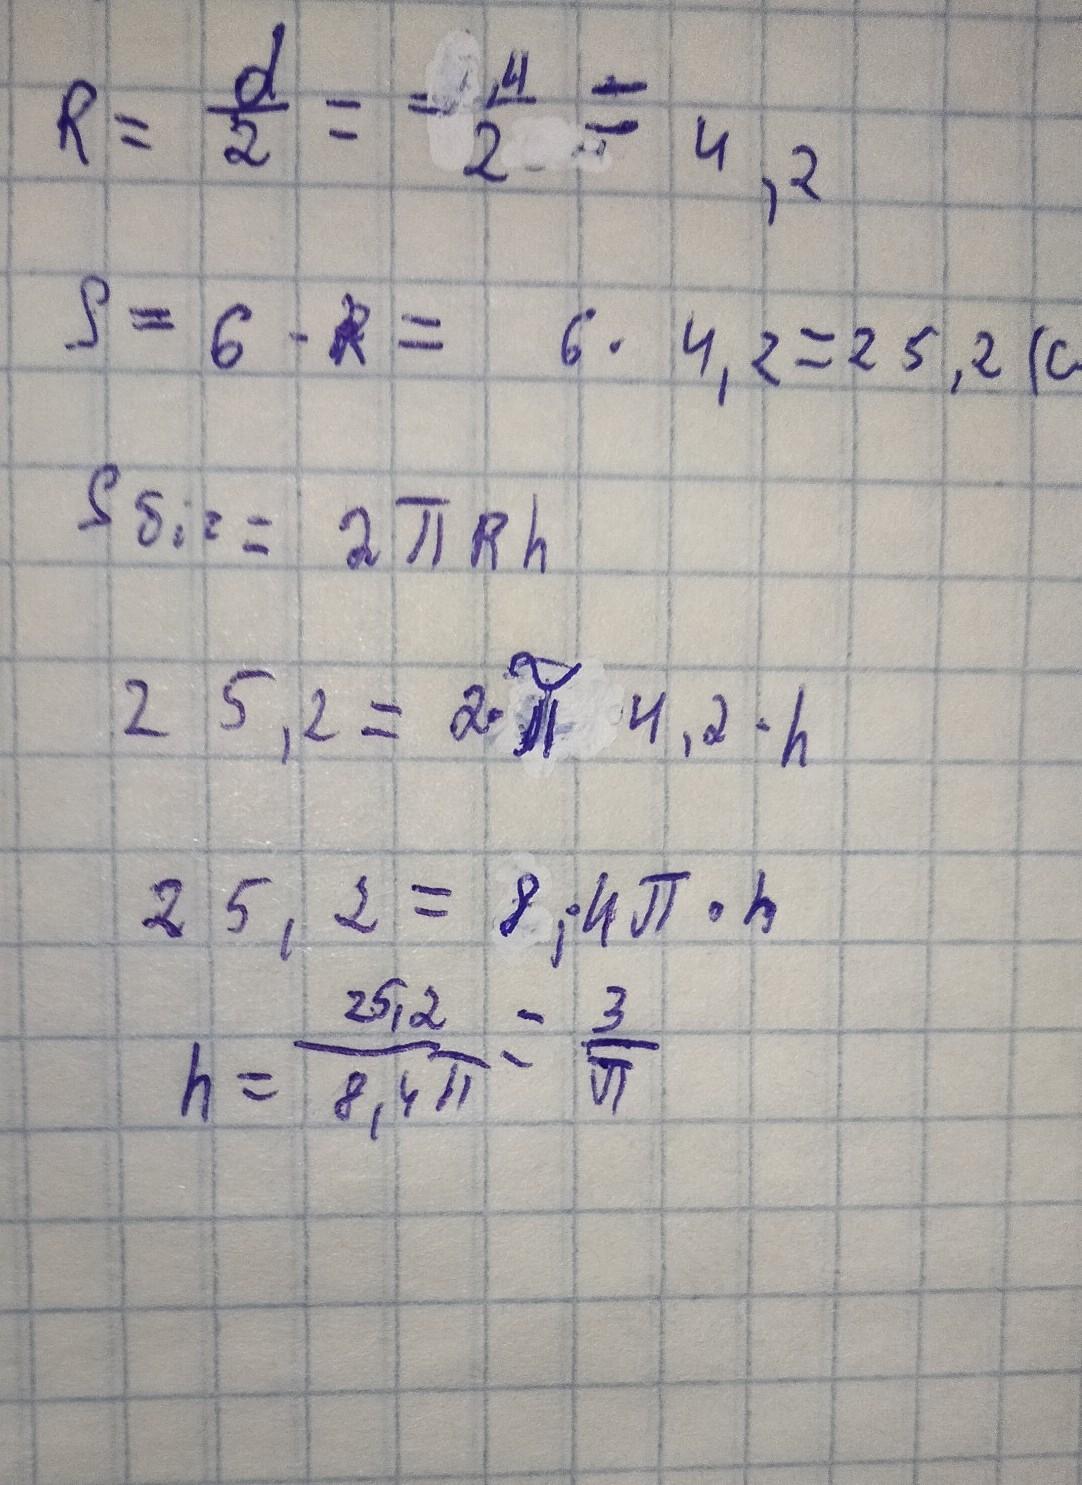 R = d/2 = ,4/2 = 4,2
S = 6 · R = 6 · 4,2 = 25,2 (с
S біч = 2πRh
25,2 = 2·π 4,2 · h
25,2 = 8,4π · h
h = 25,2/8,4π = 3/π